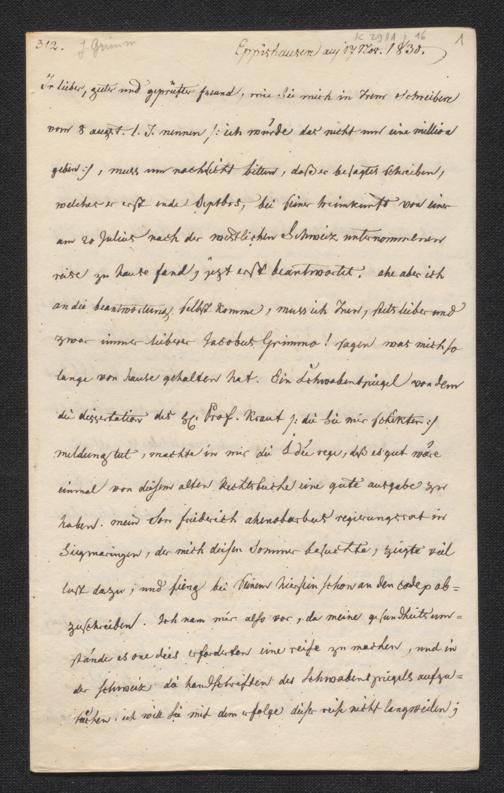 312. J Grimm K 2911, 16 1
Eppishausen auf 17 Nov. 1830.
Ir lieber, guter und geprüfter freund, wie Sie mich in Irem schreiben
vom 8 augst. l. J. nennen /: ich würde das nicht um eine million
geben :/, muss um nachsicht bitten, daß er besagtes schreiben,
welches er erst ende Septbrs, bei seiner heimkunft von einer
am 20 Julius nach der westlichen Schweiz unternommenen
reise zu hause fand, jezt erst beantwortet. ehe aber ich
an die beantwortung selbst komme, muss ich Inen, stets lieber und
zwar immer lieberer Jacobus Grimmo! sagen was mich so
lange von hause gehalten hat. Ein Schwabenspiegel von dem
die dissertation des Prof. Kraut /: die Sie mir schikten :/
meldung tut, machte in mir die Idee rege, daß es gut wäre
einmal von diesem alten Rechtsbuche eine gute ausgabe zu
haben. mein Son friederich ahenobarbus regierungsrat in
Siegmaringen, der mich diesen Sommer besuchte, zeigte viel
lust dazu, und fieng bei seinem hiersein schon an den codex ab=
zuschreiben. Ich nam mir also vor, da meine gesundheitsum=
stände es one dies erforderten eine reise zu machen, und in
der schweiz die handschriften des Schwabenspiegels aufzu=
suchen. ich will Sie mit dem erfolge dieser reise nicht langweilen;